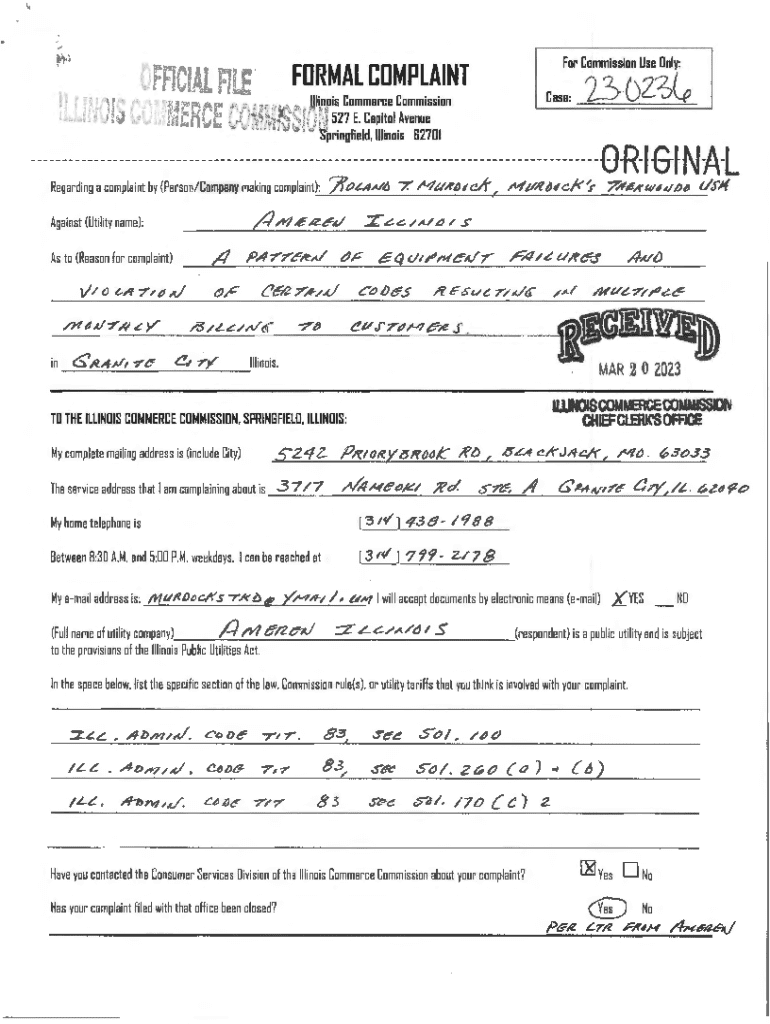 OFFICIAL FILE
ILLINOIS COMMERCE COMMISSION
FORMAL COMPLAINT
Illinois Commerce Commission
527 E. Capitol Avenue
Springfield, Illinois 62701
For Commission Use Only:
Case: 23-0236
ORIGINAL
Regarding a complaint by (Person/Company making complaint): ROLAND T. MURDICK, MURDOCK'S TAEKWONDO USA
Against (Utility name): AMEREN ILLINOIS
As to (Reason for complaint) A PATTERN OF EQUIPMENT FAILURES AND
VIOLATION OF CERTAIN CODES RESULTING IN MULTIPLE
MONTHLY BILLING TO CUSTOMERS.
in GRANITE CITY Illinois.
RECEIVED
MAR 20 2023
ILLINOIS COMMERCE COMMISSION
CHIEF CLERK'S OFFICE
TO THE ILLINOIS COMMERCE COMMISSION, SPRINGFIELD, ILLINOIS:
My complete mailing address is (include City) 5242 PRIORYBROOK RD, BLACKJACK, MO. 63033
The service address that I am complaining about is 3717 NAMEOKI Rd. STE. A GRANITE CITY, IL. 62040
My home telephone is [314] 438-1988
Between 8:30 A.M. and 5:00 P.M. weekdays, I can be reached at [314] 799-2178
My e-mail address is: MURDOCKSTKD@YMAIL.COM I will accept documents by electronic means (e-mail) X YES NO
(Full name of utility company) AMEREN ILLINOIS (respondent) is a public utility and is subject
to the provisions of the Illinois Public Utilities Act.
In the space below, list the specific section of the law, Commission rule(s), or utility tariffs that you think is involved with your complaint.
ILL. ADMIN. CODE TIT. 83, SEC 501.100
ILL. ADMIN. CODE TIT 83, SEC 501.260 (a) + (b)
ILL. ADMIN. CODE TIT 83 SEC 501.170 (C) 2
Have you contacted the Consumer Services Division of the Illinois Commerce Commission about your complaint? X Yes No
Has your complaint filed with that office been closed? Yes No
PER LTR FROM AMEREN